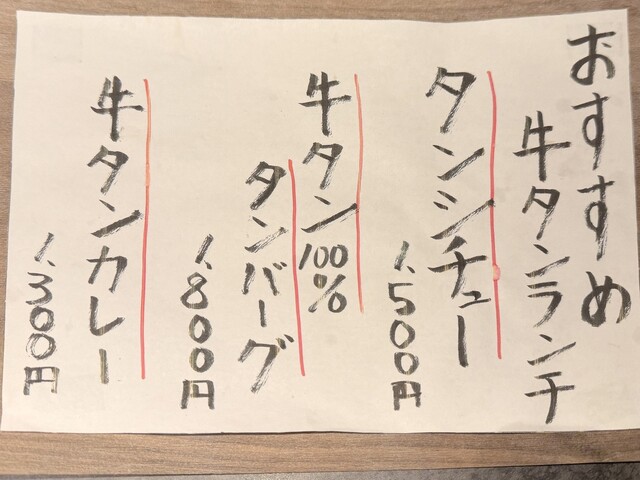 おすすめ
牛タンランチ
タンシチュー
1,500円
牛タン100%
タンバーグ
1,800円
牛タンカレー
1,300円